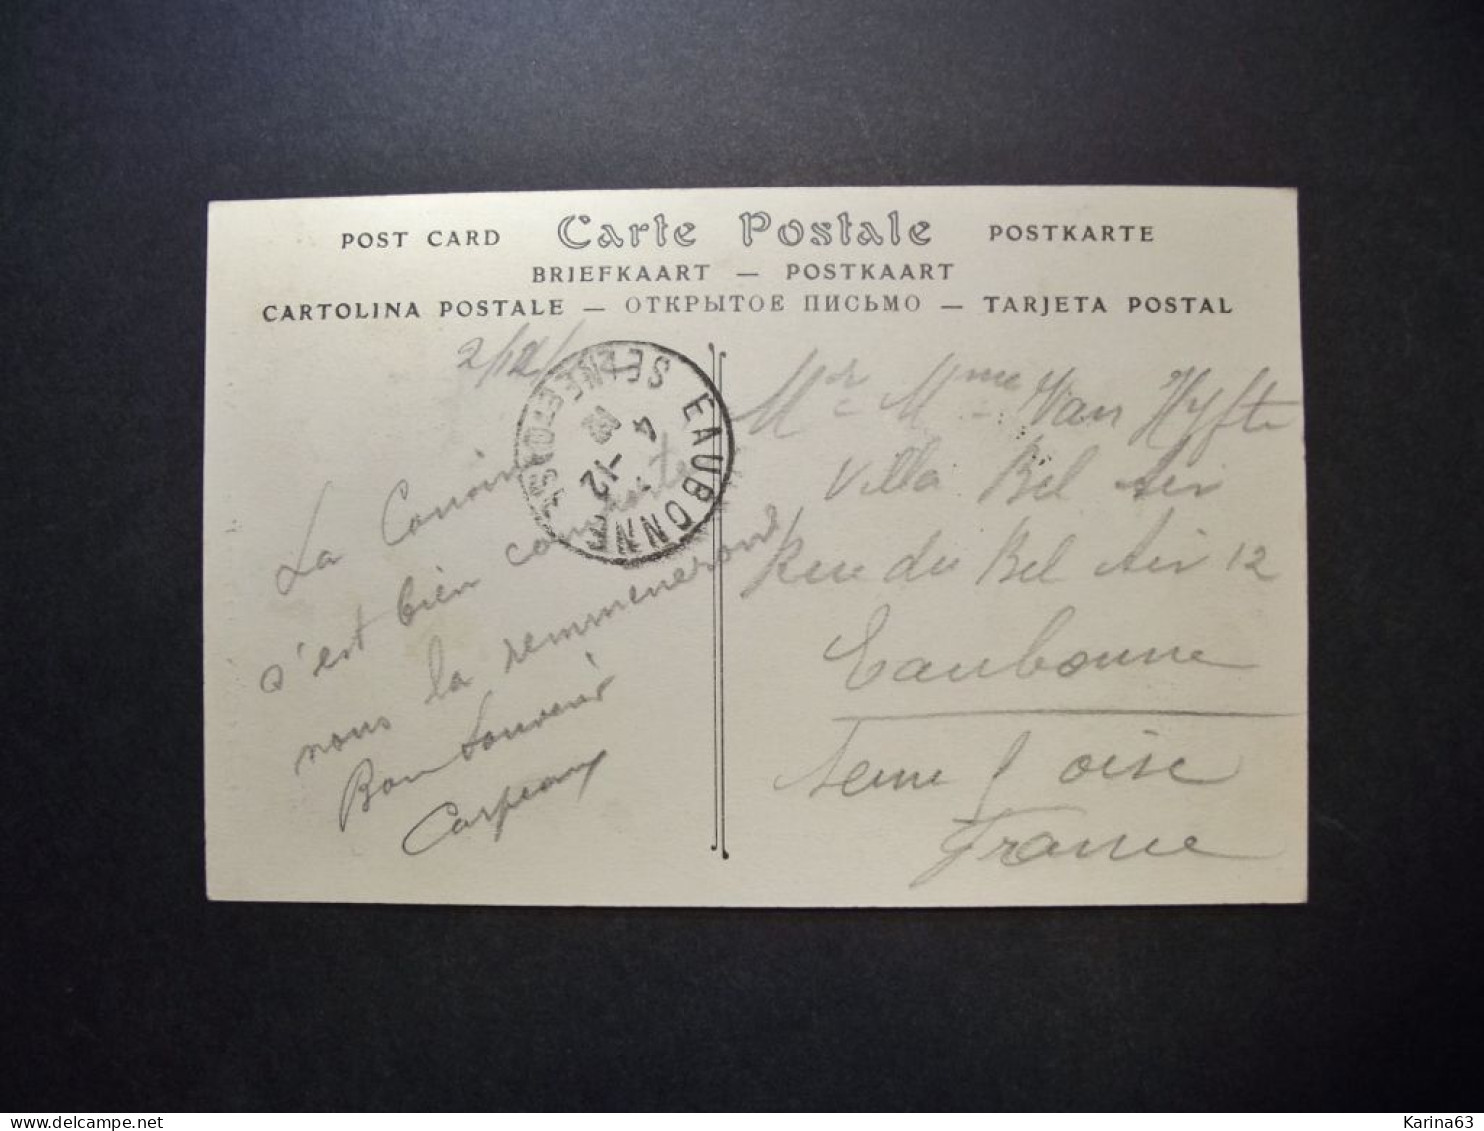 POST CARD Carte Postale POSTKARTE
BRIEFKAART — POSTKAART
CARTOLINA POSTALE — ОТКРЫТОЕ ПИСЬМО — TARJETA POSTAL
2/12/
EAUBONNE
SEINE ET OISE
4-12
La
s'est bien comporté
nous la remmenerons
Bon Souvenir
Carpeaux
Mr Mme Van Hyfte
Villa Bel Air
Rue du Bel Air 12
Eaubonne
Seine / oise
France
Karina63